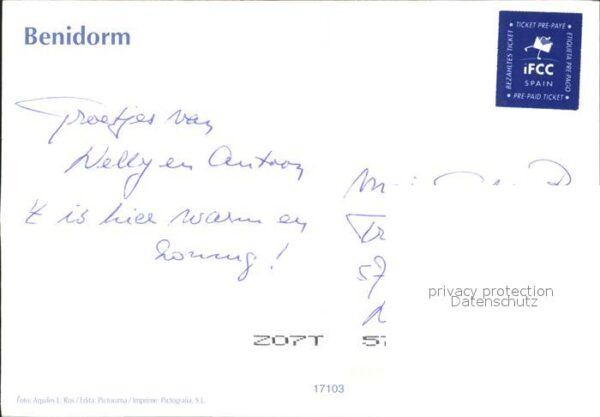 Benidorm
TICKET PRE-PAYÉ
BEZAHLTES TICKET
ETIQUETA PRE PAGO
iFCC
SPAIN
PRE-PAID TICKET
Groetjes van
Nelly en Antoon
't is hier warm en
zonnig!
57
privacy protection
Datenschutz
ZO7T 57
17103
Foto: Aquiles L. Ros / Edita: Pictorama / Imprime: Pictografia, S.L.